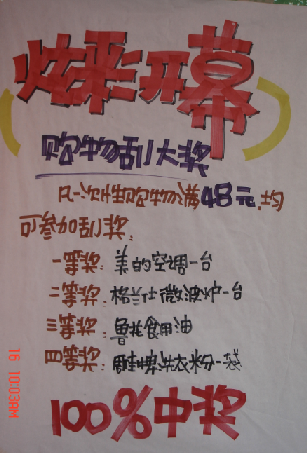 炫彩开幕
购物刮大奖
凡一次性购物满48元,均
可参加刮奖:
一等奖:美的空调一台
二等奖:格兰仕微波炉一台
三等奖:鲁花食用油
四等奖:雕牌洗衣粉一袋
100%中奖
16 10:03AM